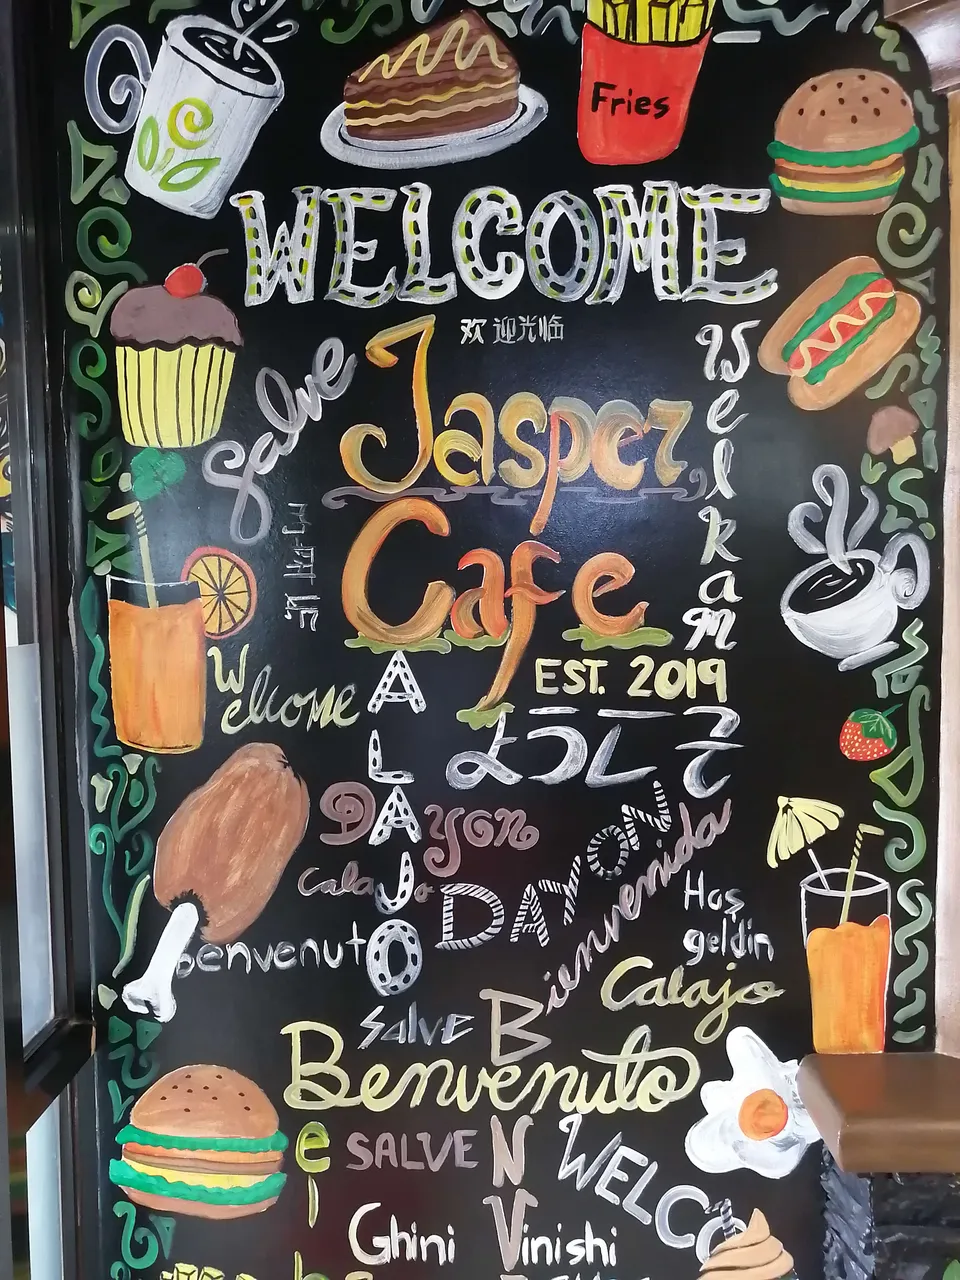 Fries
WELCOME
欢迎光临
Salve
Jasper
Cafe
Welkam
Welcome
EST. 2019
ようこそ
ALAJO
Dayon
Calajo
DAYON
Bienvenida
Hoş
geldin
Benvenuto
Calajo
SALVE
Benvenuto
SALVE
WELCO
Ghini Vinishi